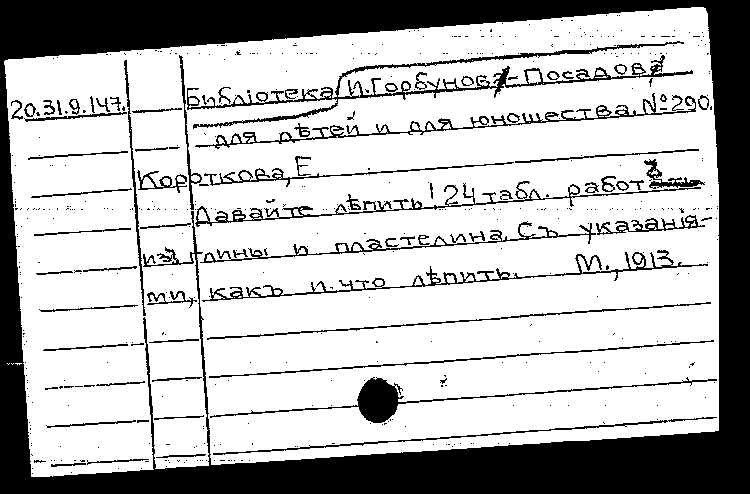 20.31.9.147. Библіотека И. Горбунова-Посадова
для дѣтей и для юношества. № 290.
Короткова, Е.
Давайте лѣпить! 24 табл. работъ
изъ глины и пластелина. Съ указанія-
ми, какъ и что лѣпить. М., 1913.